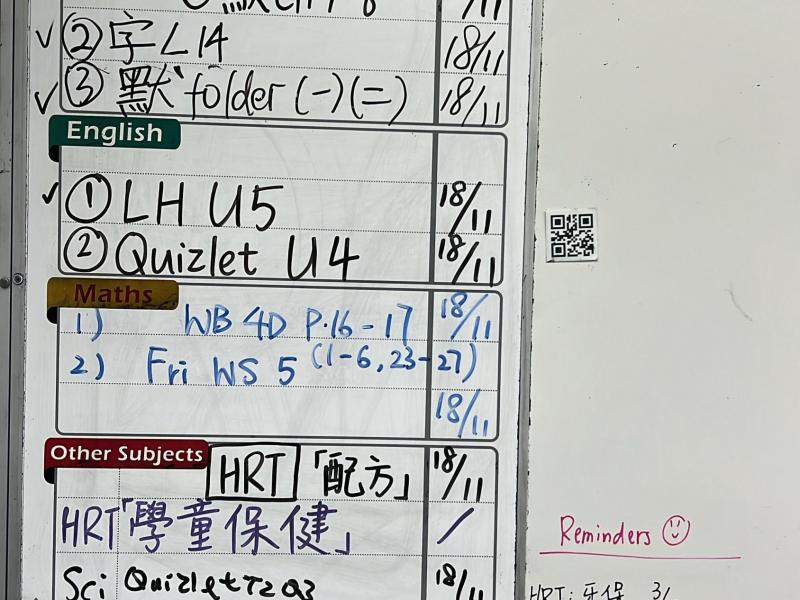 18/11
② 字 L14 18/11
③ 默 folder (一)(二) 18/11
English
① LH U5 18/11
② Quizlet U4 18/11
Maths
1) WB 4D P.16-17 18/11
2) Fri WS 5 (1-6, 23-27)
18/11
Other Subjects
HRT 「配方」 18/11
HRT「學童保健」 /
Sci Quizlet T2Q3 18/11
Reminders
HRT: 牙保 3/